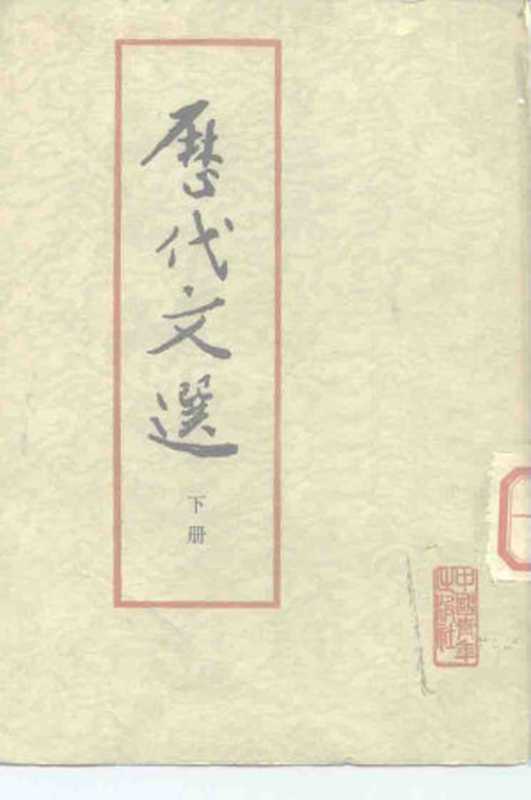 歷代文選
下册
中國青年
出版社